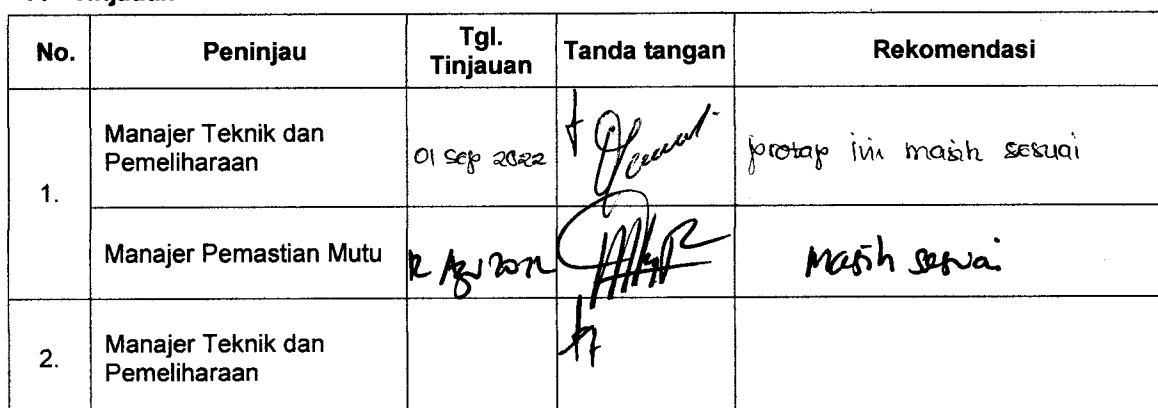 No. Peninjau Tgl. Tinjauan Tanda tangan Rekomendasi
1.
Manajer Teknik dan
Pemeliharaan
01 Sep 2022
protap ini masih sesuai
Manajer Pemastian Mutu
masih sesuai
2.
Manajer Teknik dan
Pemeliharaan